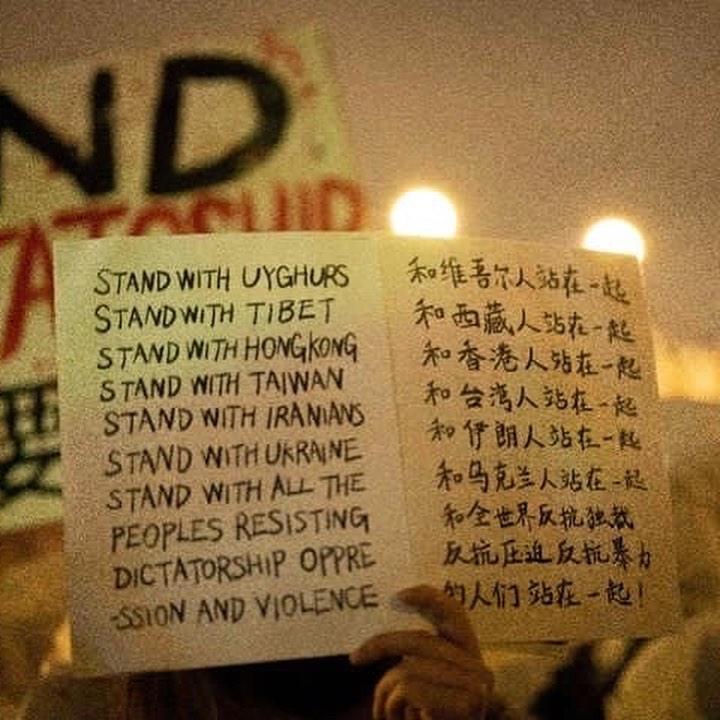 ND
TATORSHIP
要
STAND WITH UYGHURS
STAND WITH TIBET
STAND WITH HONGKONG
STAND WITH TAIWAN
STAND WITH IRANIANS
STAND WITH UKRAINE
STAND WITH ALL THE
PEOPLES RESISTING
DICTATORSHIP OPPRE
-SSION AND VIOLENCE
和维吾尔人站在一起
和西藏人站在一起
和香港人站在一起
和台湾人站在一起
和伊朗人站在一起
和乌克兰人站在一起
和全世界反抗独裁
反抗压迫反抗暴力
的人们站在一起!